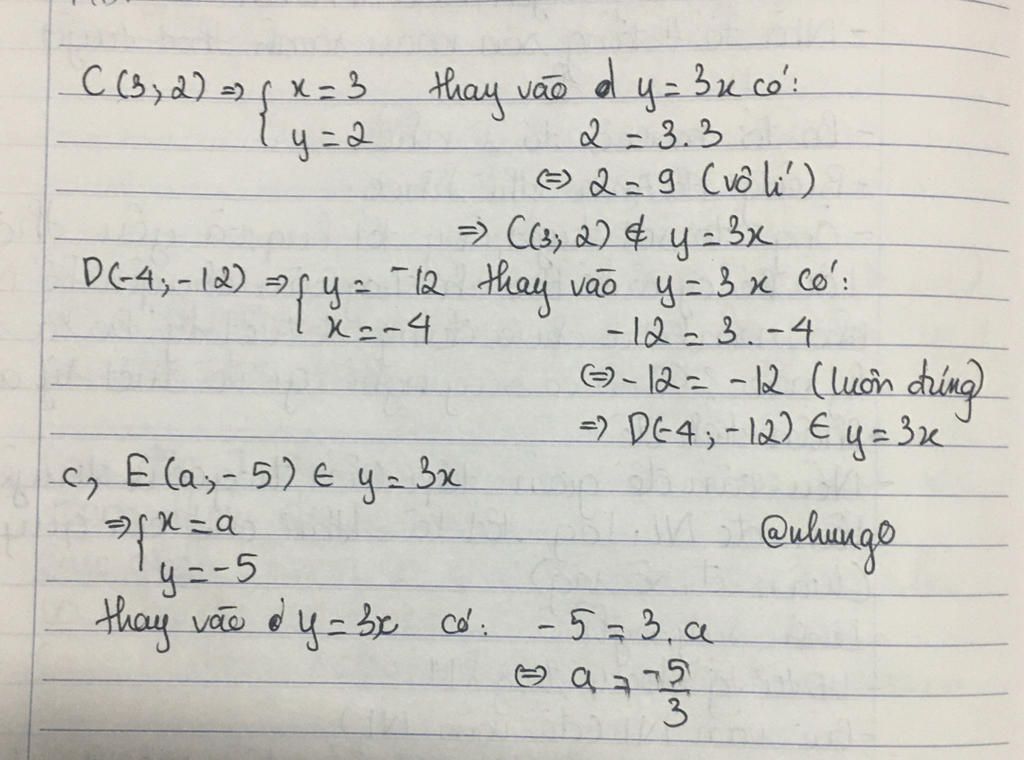 C(3; 2) ⇒ { x = 3 thay vào d y = 3x có:
y = 2 2 = 3.3
⇔ 2 = 9 (vô lí)
⇒ C(3; 2) ∉ y = 3x
D(-4; -12) ⇒ { y = -12 thay vào y = 3x có:
x = -4 -12 = 3. -4
⇔ -12 = -12 (luôn đúng)
⇒ D(-4; -12) ∈ y = 3x
c, E(a; -5) ∈ y = 3x
⇒ { x = a @nhung0
y = -5
thay vào d y = 3x có: -5 = 3.a
⇔ a = -5/3